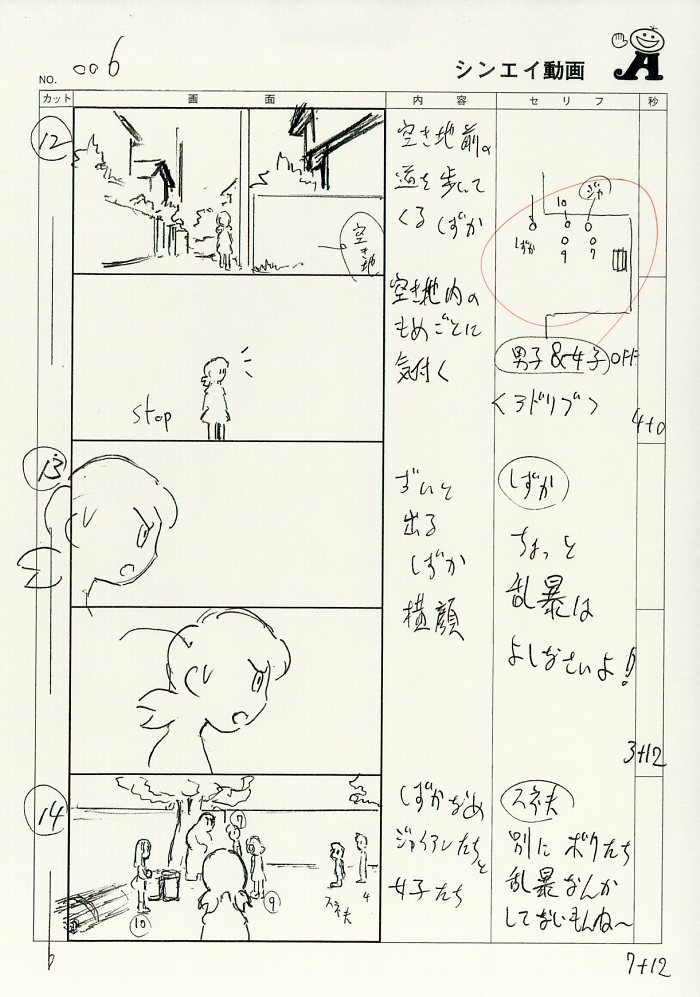 NO. 006
シンエイ動画
カット 画面 内容 セリフ 秒
12
空き地前の
道を歩いて
くるしずか
空き地
しずか
10
ジャ
9
7
空き地内の
もめごとに
気付く
stop
男子&女子 OFF
4+0
13
ずいと
出る
しずか
横顔
しずか
ちょっと
乱暴は
よしなさいよ!
3+12
14
7
9
10
スネ夫
4
しずかなめ
ジャイアンたちと
女子たち
スネ夫
別にボクたち
乱暴なんか
してないもんね〜
7+12